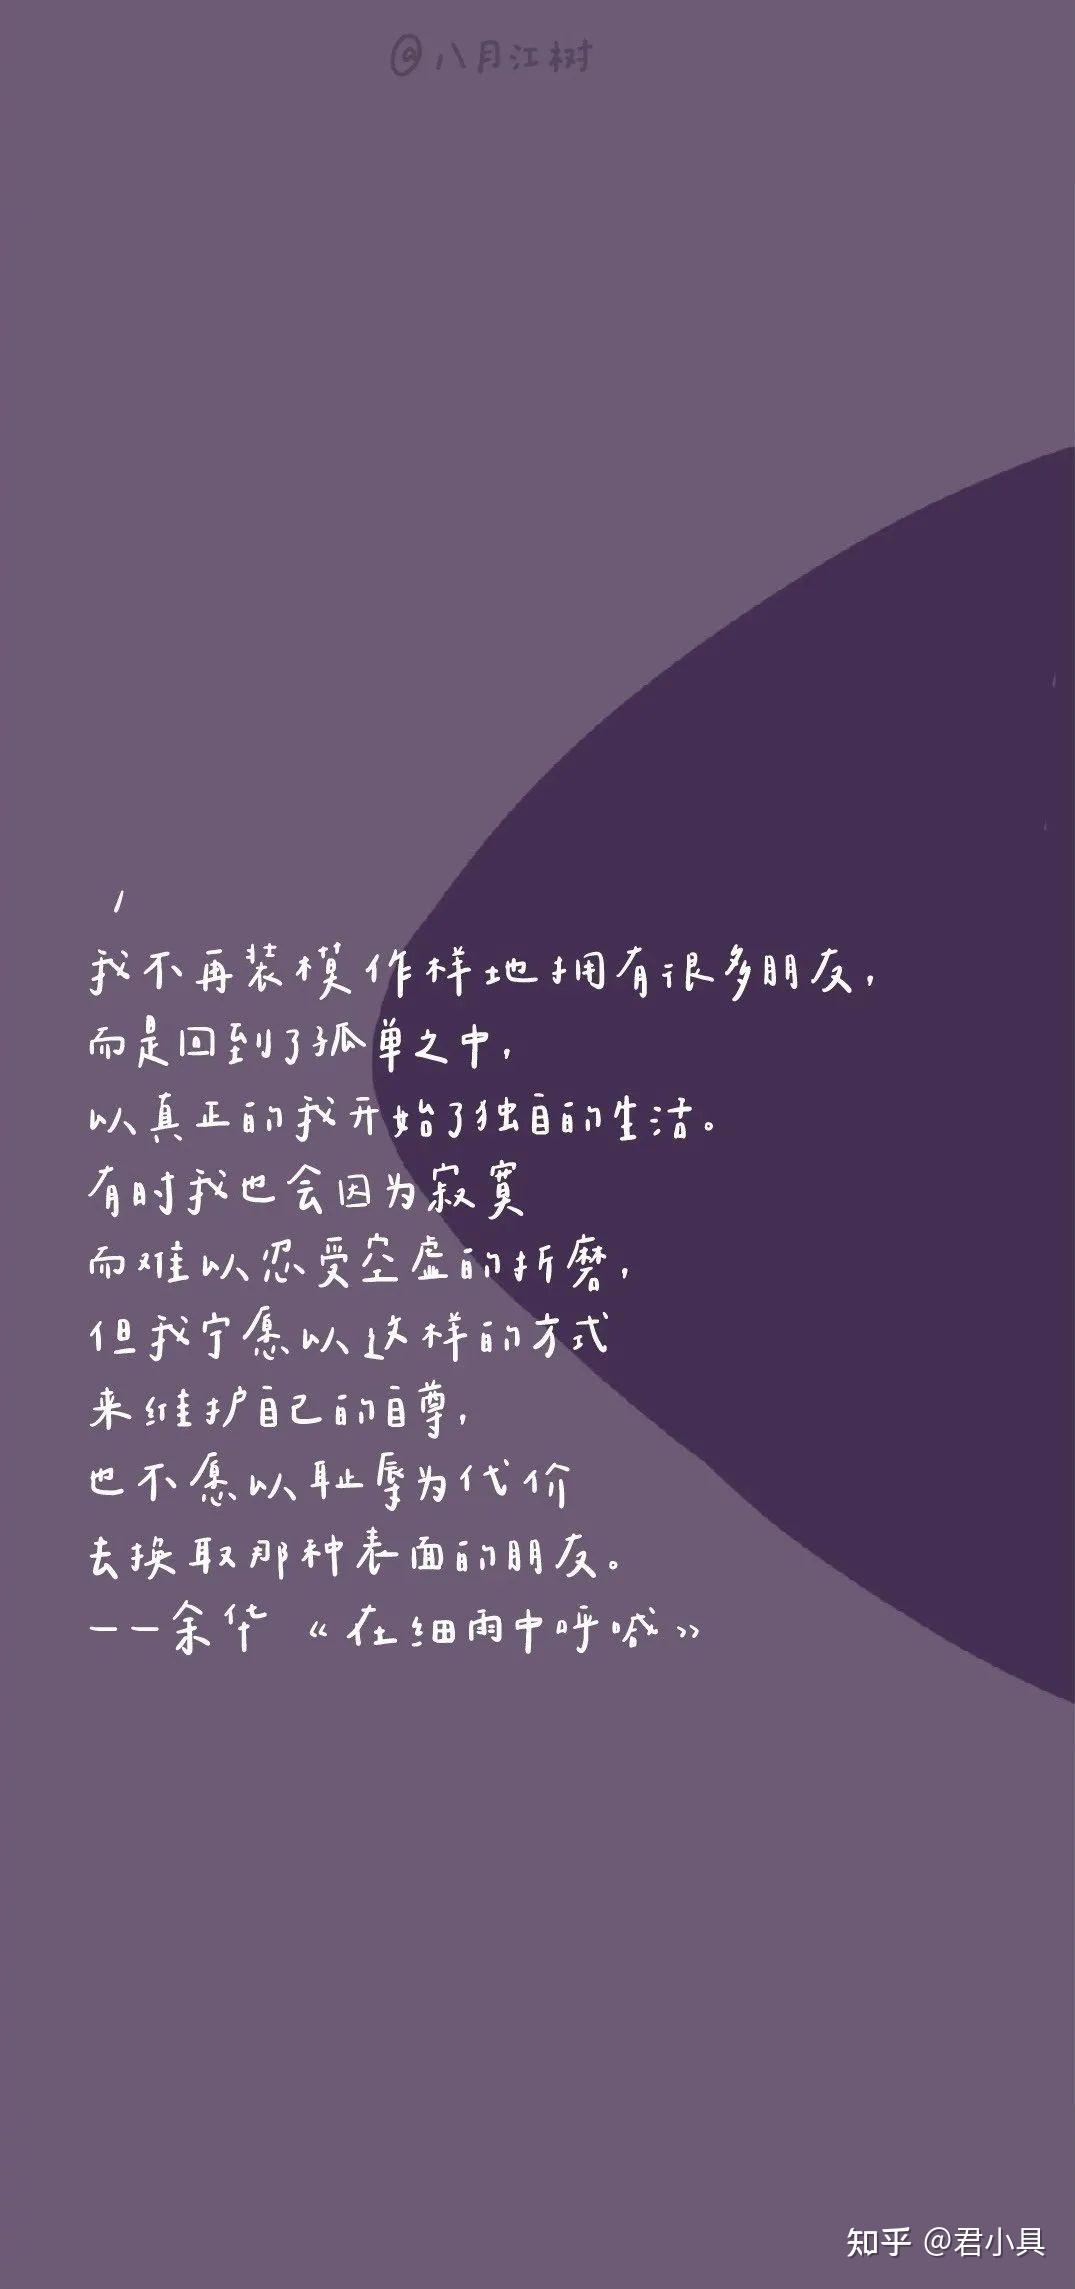 @八月江树
1
我不再装模作样地拥有很多朋友，
而是回到了孤单之中，
以真正的我开始了独自的生活。
有时我也会因为寂寞
而难以忍受空虚的折磨，
但我宁愿以这样的方式
来维护自己的自尊，
也不愿以耻辱为代价
去换取那种表面的朋友。
——余华《在细雨中呼喊》
知乎 @君小具